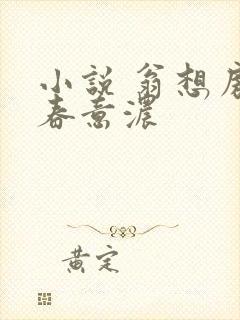 小說 翁想
春意濃
黄定